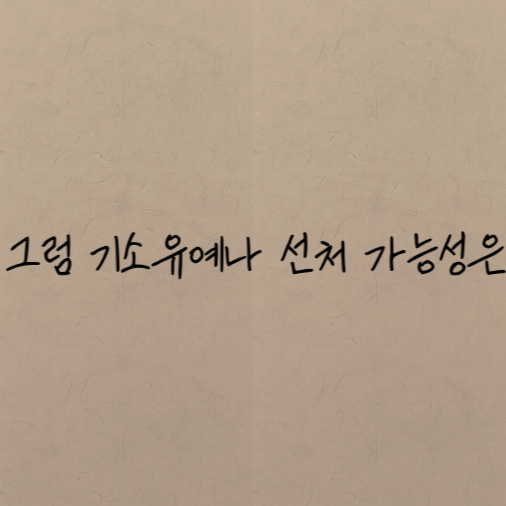 그럼 기소유예나 선처 가능성은